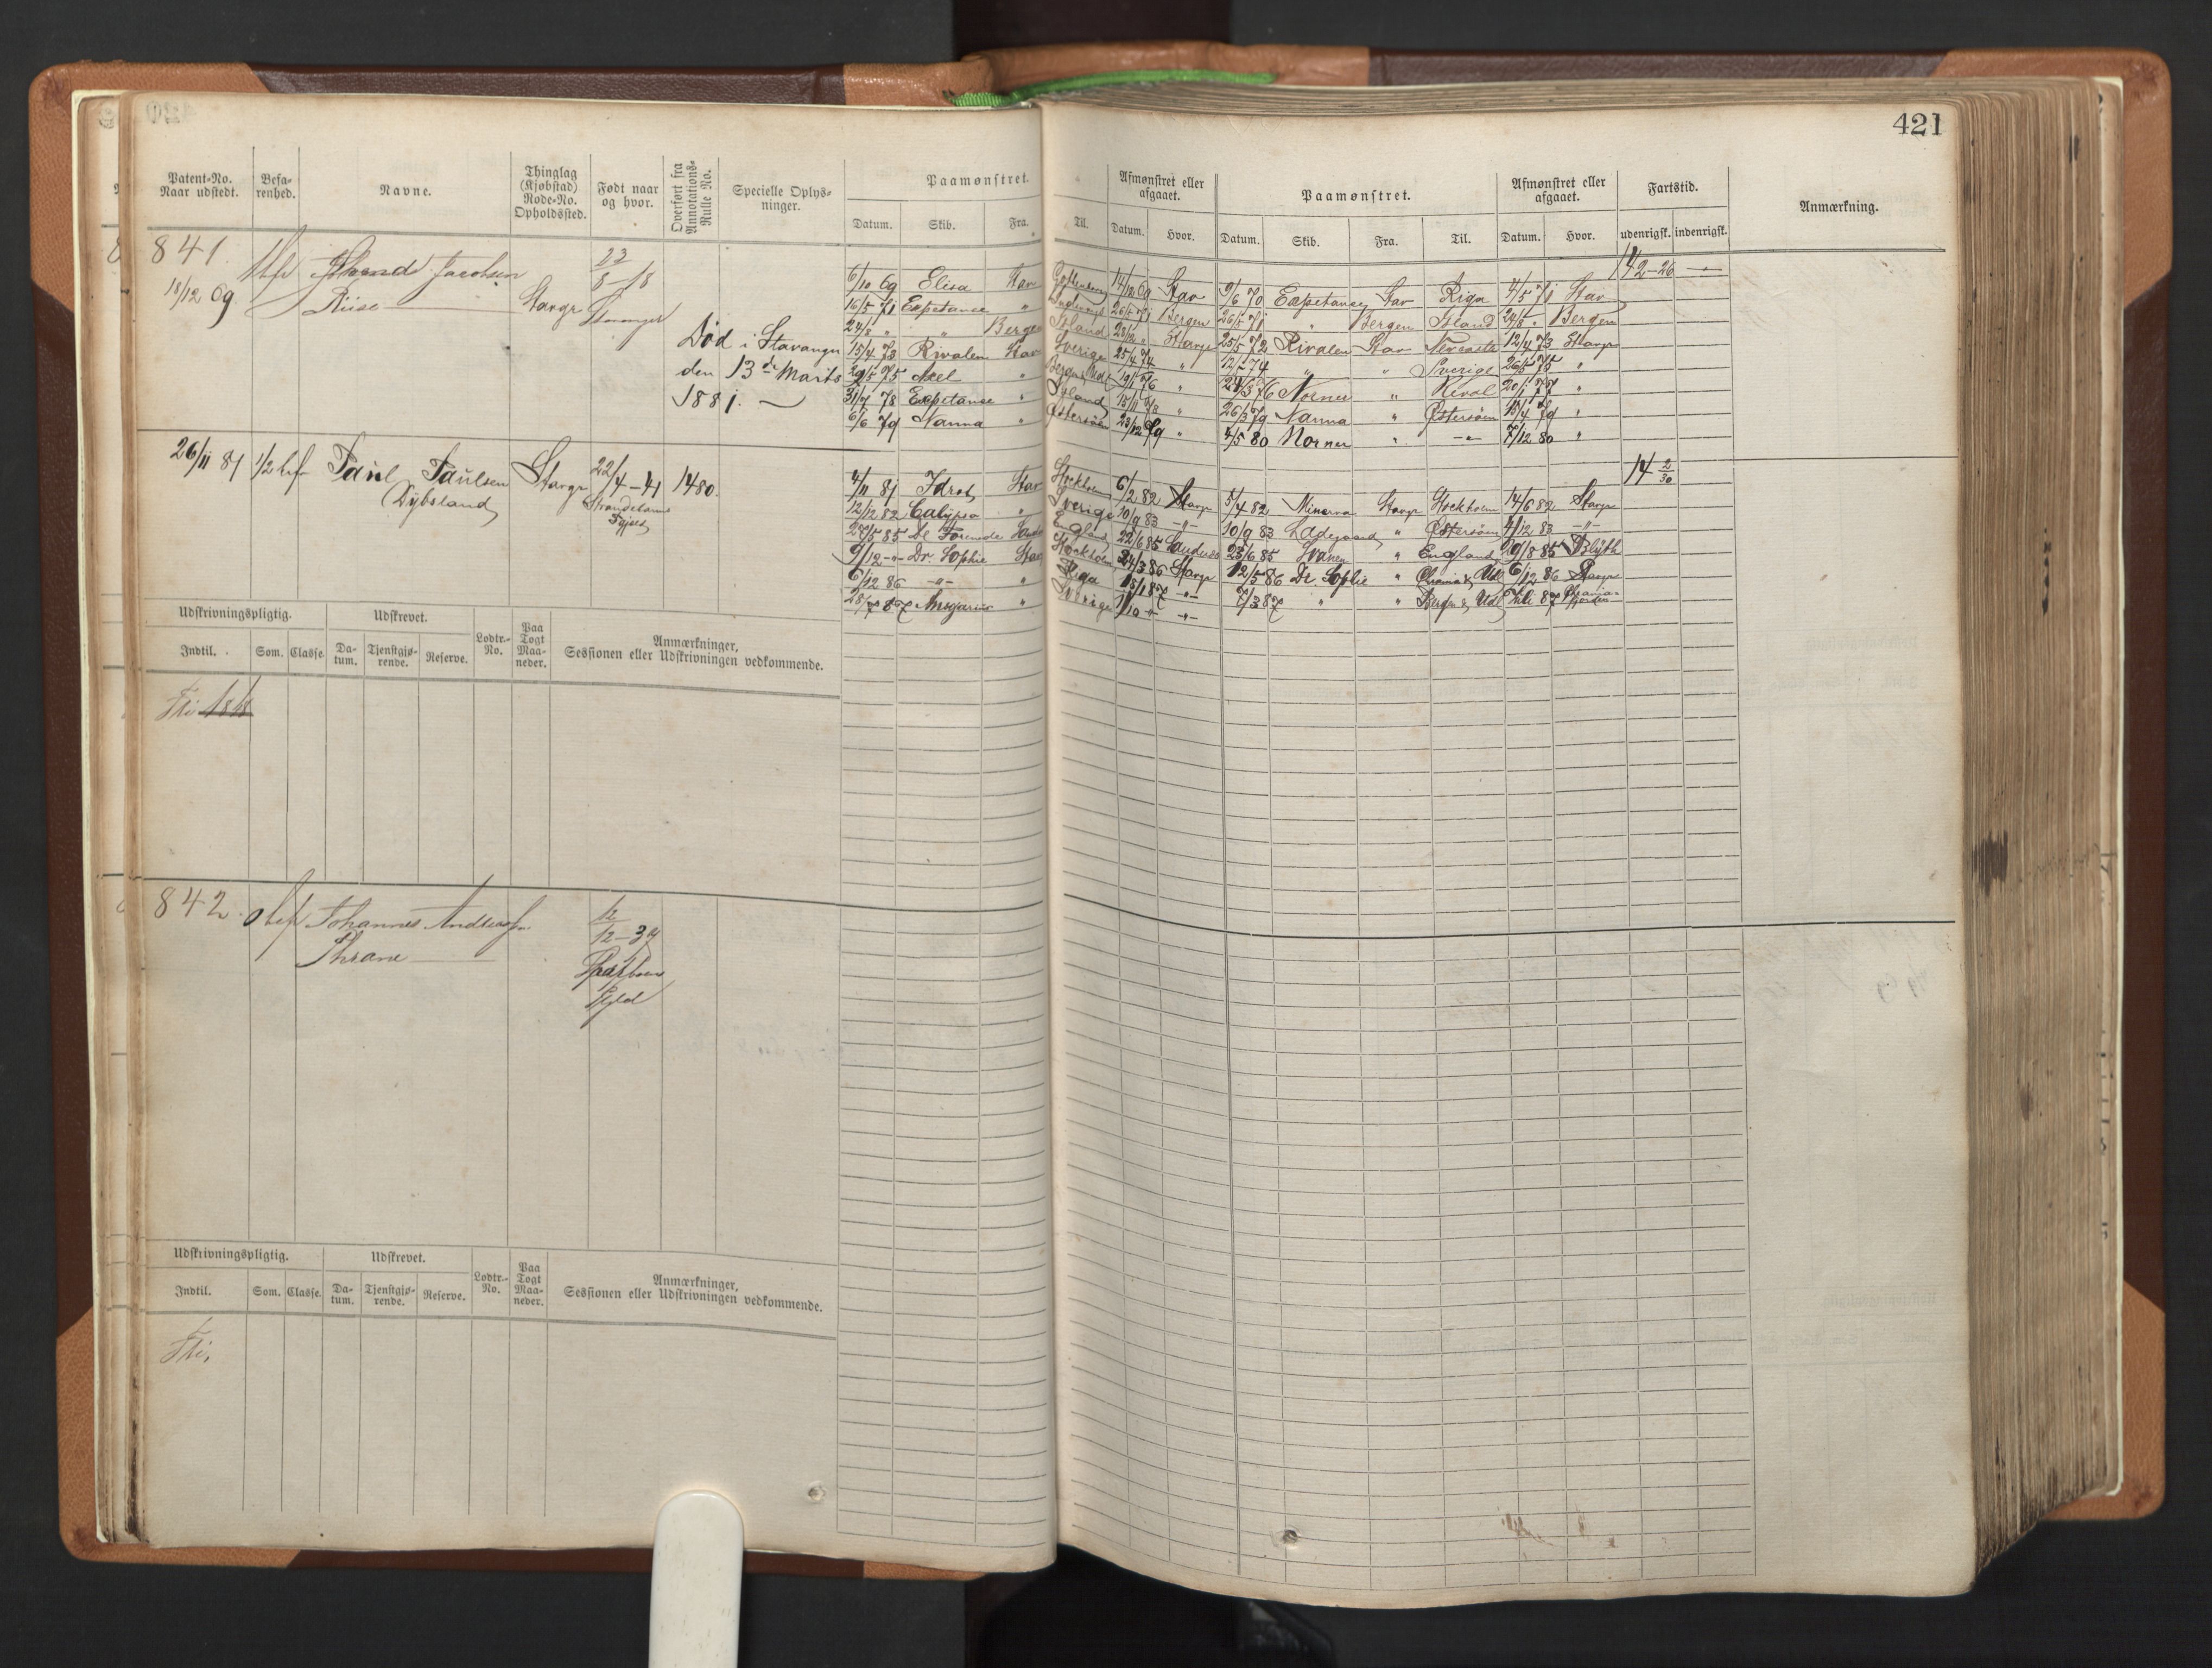 421
Patent-No. Naar udstedt. Befarenhed. Navne. Thinglag (Kjøbstad) Rode-No. Opholdssted. Født naar og hvor. Overført fra Annotations-Rulle No. Specielle Oplysninger. Paamønstret. Afmønstret eller afgaaet. Paamønstret. Afmønstret eller afgaaet. Fartstid. Anmærkning.
Datum. Skib. Fra. Til. Datum. Hvor. Datum. Skib. Fra. Til. Datum. Hvor. udenrigsk. indenrigsk.
841. Jacobsen 22/8-18
18/12 69 Riise Stavgr Stavanger
Død i Stavanger
den 13de Marts
1881. —
6/10 69 Elisa Stav 14/12 69 Stav 9/6 70 Expetance Stav Riga 4/5 71 Stav
16/5 71 Expetance " 26/5 71 Bergen 26/5 71 " Bergen Island 24/8 " Bergen
24/8 " " Bergen Island Stavgr 25/5 72 Rivalen Stav 12/4 73 Stavgr
15/4 73 Rivalen Stav Sverige 25/4 74 " " " Sverige 26/5 75 "
29/5 75 Axel " 19/1 76 " 24/3 76 Norner " Reval 20/1 77 "
31/7 78 Expetance " Island 15/11 78 " 26/3 79 Nanna " Østersøen 15/4 79 "
6/6 79 Nanna " Østersøen 23/12 79 " 4/5 80 Norner " -"- 7/12 80 "
26/11 81 1/2 bef Paul Paulsen Stavgr 22/4-41 1480. 14 2/30
(Dybsland)
4/11 81 Idræt Stav Stockholm 6/2 82 Stavgr 5/4 82 Minerva Stavgr Stockholm 14/6 82 Stavgr
12/12 82 Calypso " Sverige 10/9 83 -"- 10/9 83 Ladegaard " Østersøen 4/12 83 -"-
28/5 85 De Forenede England 22/6 85 23/6 85 Svanen " England 20/8 85 Blyth
9/12 -"- Dr. Sophie Stav Stockholm 24/3 86 Stavgr 12/5 86 Dr. Sophie " 6/12 86 Stavgr
6/12 86 -"- " Riga 15/1 87 -"- 7/3 87 " " Bergen & Udl
28/7 87 Ansgarius " Sverige 1/10 -"- -"-
Udskrivningspligtig. Udskrevet. Lodtr.-No. Paa Togt Maaneder. Anmærkninger, Sessionen eller Udskrivningen vedkommende.
Indtil. Som. Classe. Datum. Tjenstgjørende. Reserve.
Fri 1818
842. Johannes Andersen 12/12-37
Thrane
Udskrivningspligtig. Udskrevet. Lodtr.-No. Paa Togt Maaneder. Anmærkninger, Sessionen eller Udskrivningen vedkommende.
Indtil. Som. Classe. Datum. Tjenstgjørende. Reserve.
Fri.